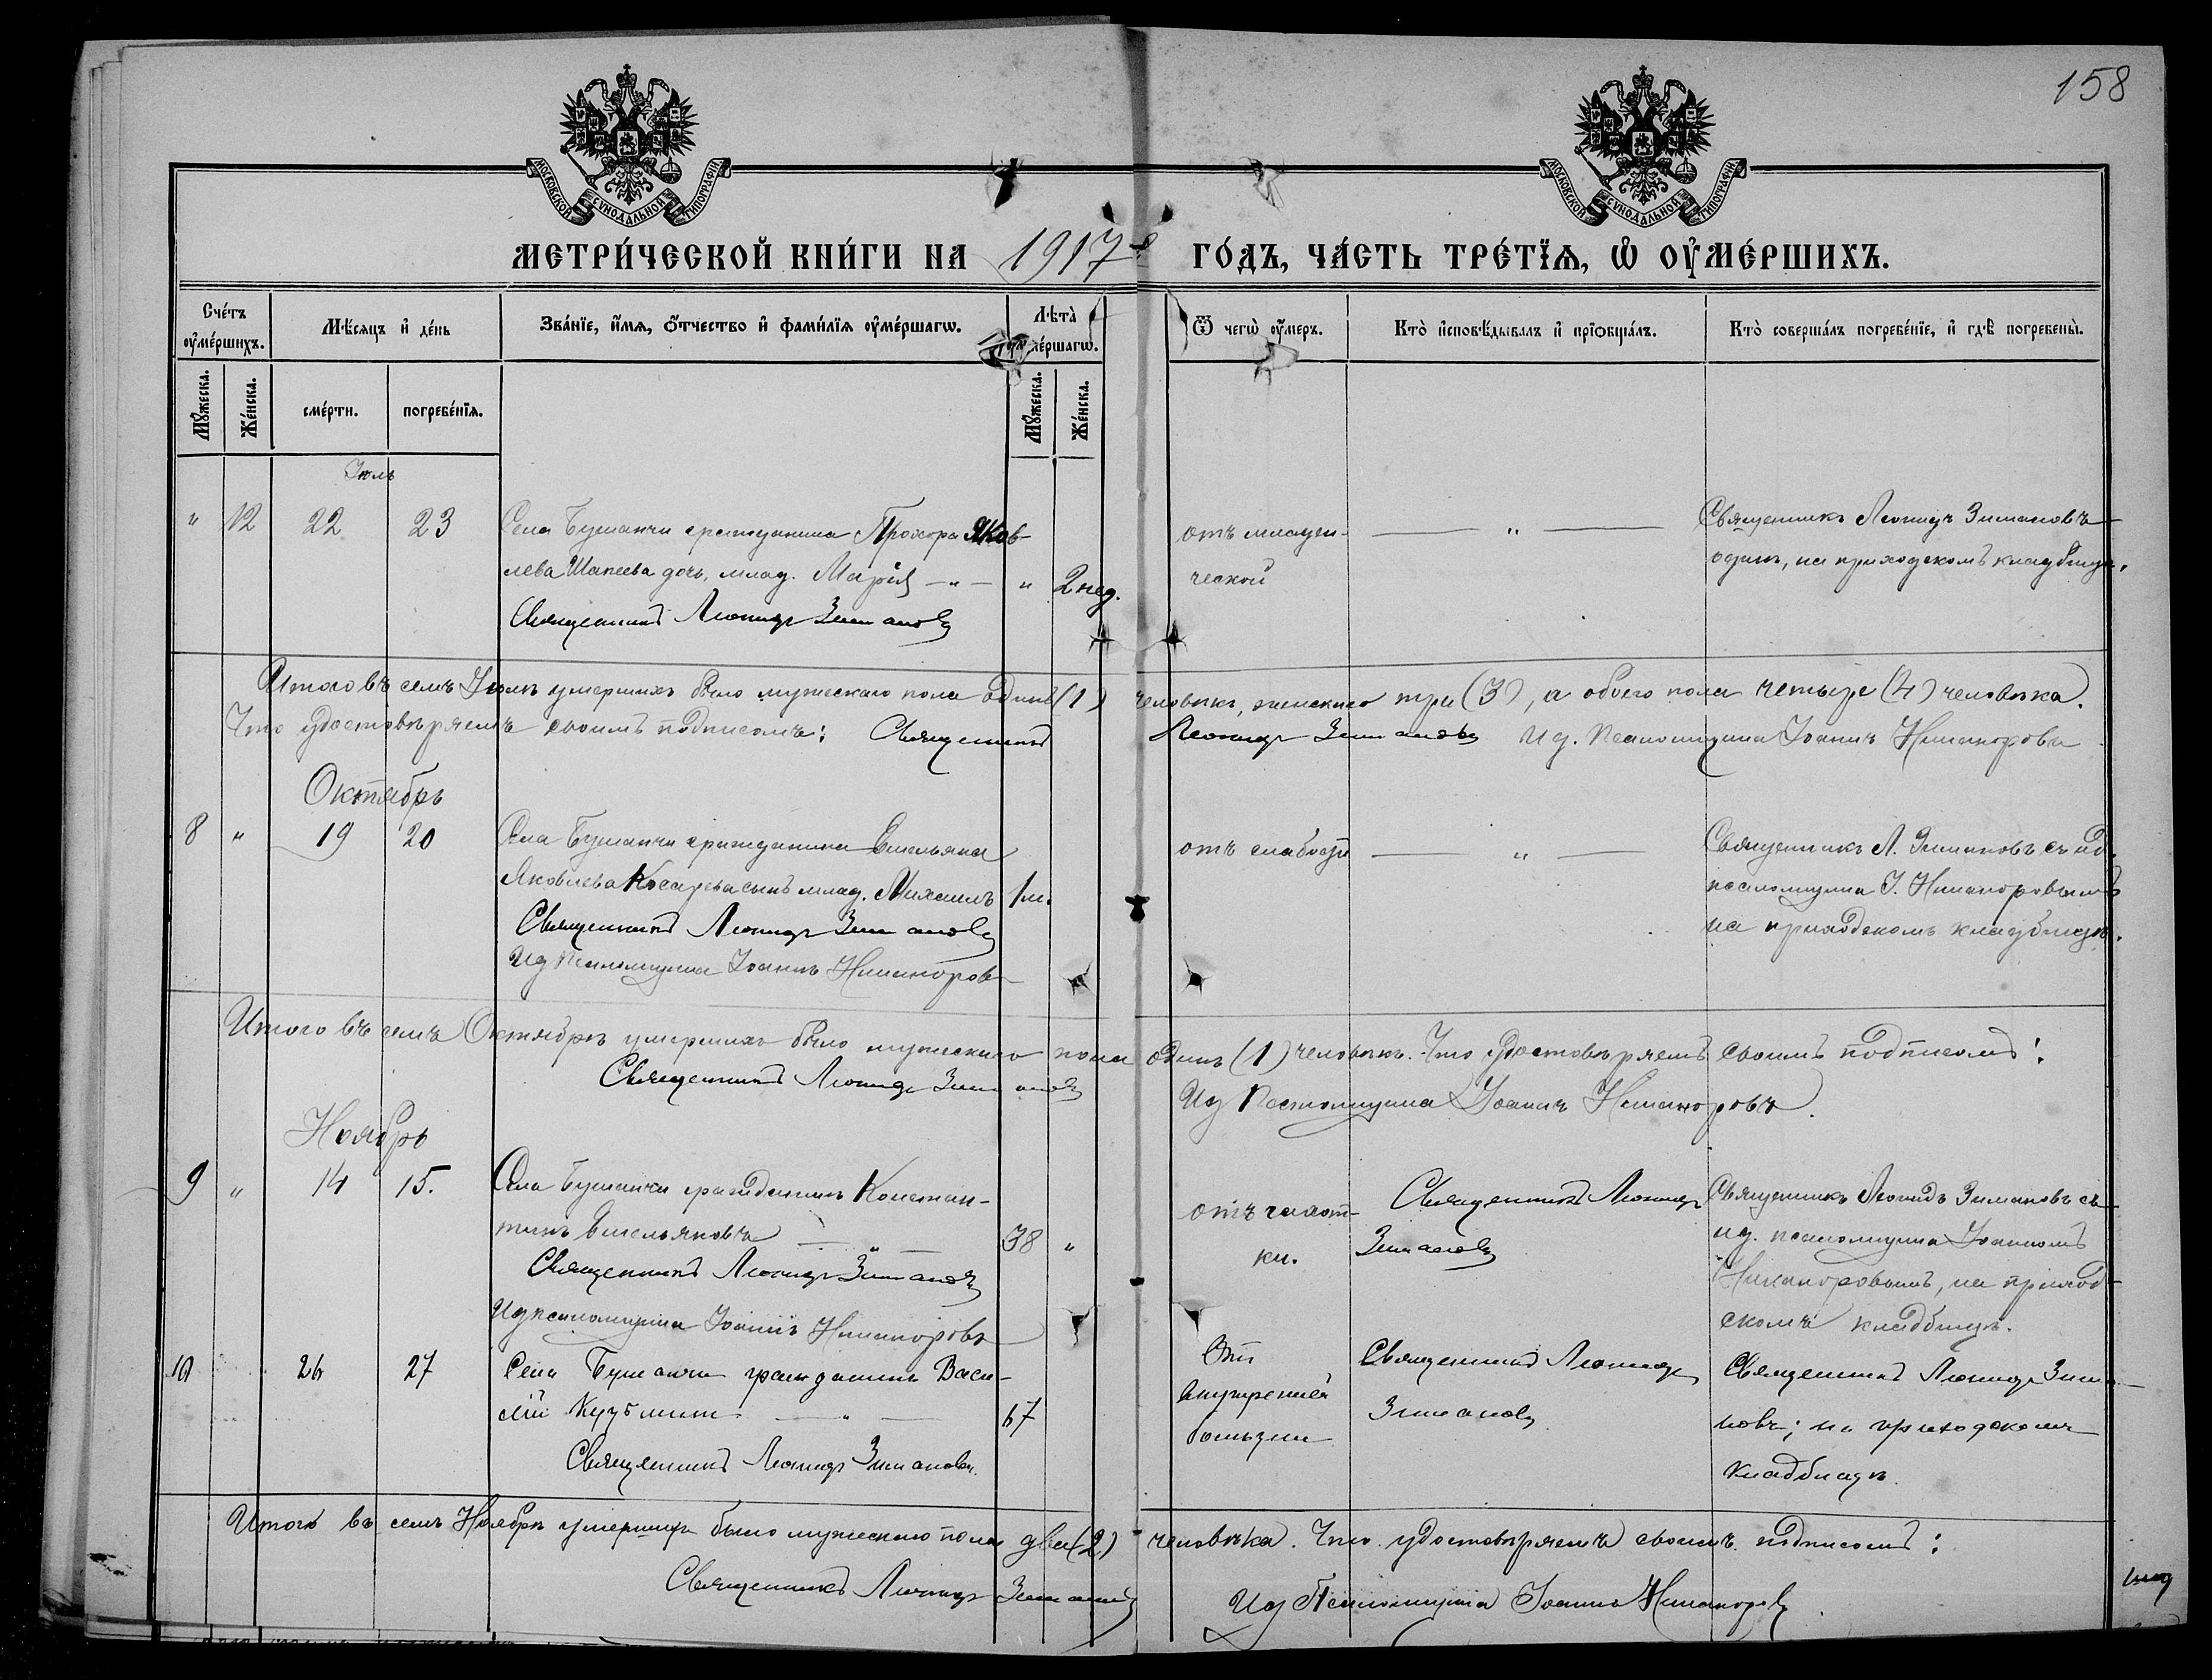 158
МОСКОВСКОЙ СУНОДАЛЬНОЙ ТИПОГРАФІИ
МОСКОВСКОЙ СУНОДАЛЬНОЙ ТИПОГРАФІИ
МЕТРИ́ЧЕСКОЙ КНИ́ГИ НА 1917й ГО́ДЪ, ЧА́СТЬ ТРЕ́ТЇѦ, Ѡ҆ ОУ҆МЕ́РШИХЪ.
Сче́тъ оу҆ме́ршихъ.
Мѣ́сяцъ и҆ де́нь
Зва́нїе, и҆́мѧ, ѻ҆́тчество и҆ фами́лїѧ оу҆ме́ршагѡ.
Лѣта̀ оу҆ме́ршагѡ.
Ѿ чегѡ̀ оу҆́меръ.
Кто̀ и҆сповѣ́дывалъ и҆ прїѡбща́лъ.
Кто̀ соверша́лъ погребе́нїе, и҆ гдѣ̀ погребены̀.
Мꙋ́жеска.
Же́нска.
сме́рти.
погребе́нїѧ.
Мꙋ́жеска.
Же́нска.
Іюль
" 12 22 23 Села Бушанчи гражданина Прохора Яков-
лева Шапеева дочь, млад. Марія — " — " 2 нед.
Священникъ Леонидъ Зимановъ
отъ младен-
ческой
— " —
Священникъ Леонидъ Зимановъ
одинъ, на приходскомъ кладбищѣ.
Итого въ семъ Іюлѣ умершихъ было мужескаго пола одинъ (1) человѣкъ, женскаго три (3), а обоего пола четыре (4) человѣка.
Что удостовѣряемъ своимъ подписомъ: Священникъ Леонидъ Зимановъ Ид. Псаломщика Іоаннъ Никаноровъ
Октябрь
8 " 19 20 Села Бушанчи гражданина Емельяна
Яковлева Косарева сынъ млад. Михаилъ 1 м.
Священникъ Леонидъ Зимановъ
Ид Псаломщика Іоаннъ Никаноровъ
отъ слабости
— " —
Священникъ Л. Зимановъ съ ид.
псаломщика І. Никаноровымъ
на приходскомъ кладбищѣ.
Итого въ семъ Октябрѣ умершихъ было мужескаго пола одинъ (1) человѣкъ. Что удостовѣряемъ своимъ подписомъ:
Священникъ Леонидъ Зимановъ
Ид Псаломщика Іоаннъ Никаноровъ.
Ноябрь
9 " 14 15. Села Бушанчи гражданинъ Констан-
тинъ Емельяновъ — " — 38 "
Священникъ Леонидъ Зимановъ
Ид псаломщика Іоаннъ Никаноровъ
отъ чахот-
ки.
Священникъ Леонидъ
Зимановъ
Священникъ Леонидъ Зимановъ съ
ид. псаломщика Іоанномъ
Никаноровымъ, на приход-
скомъ кладбищѣ.
10 26 27 Села Бушанчи гражданинъ Васи-
лій Кузьминъ — " — 67
Священникъ Леонидъ Зимановъ.
Отъ
внутренней
болѣзни
Священникъ Леонидъ
Зимановъ
Священникъ Леонидъ Зима-
новъ; на приходскомъ
кладбищѣ.
Итого въ семъ Ноябрѣ умершихъ было мужескаго пола два (2) человѣка. Что удостовѣряемъ своимъ подписомъ:
Священникъ Леонидъ Зимановъ
Ид Псаломщика Іоаннъ Никаноровъ